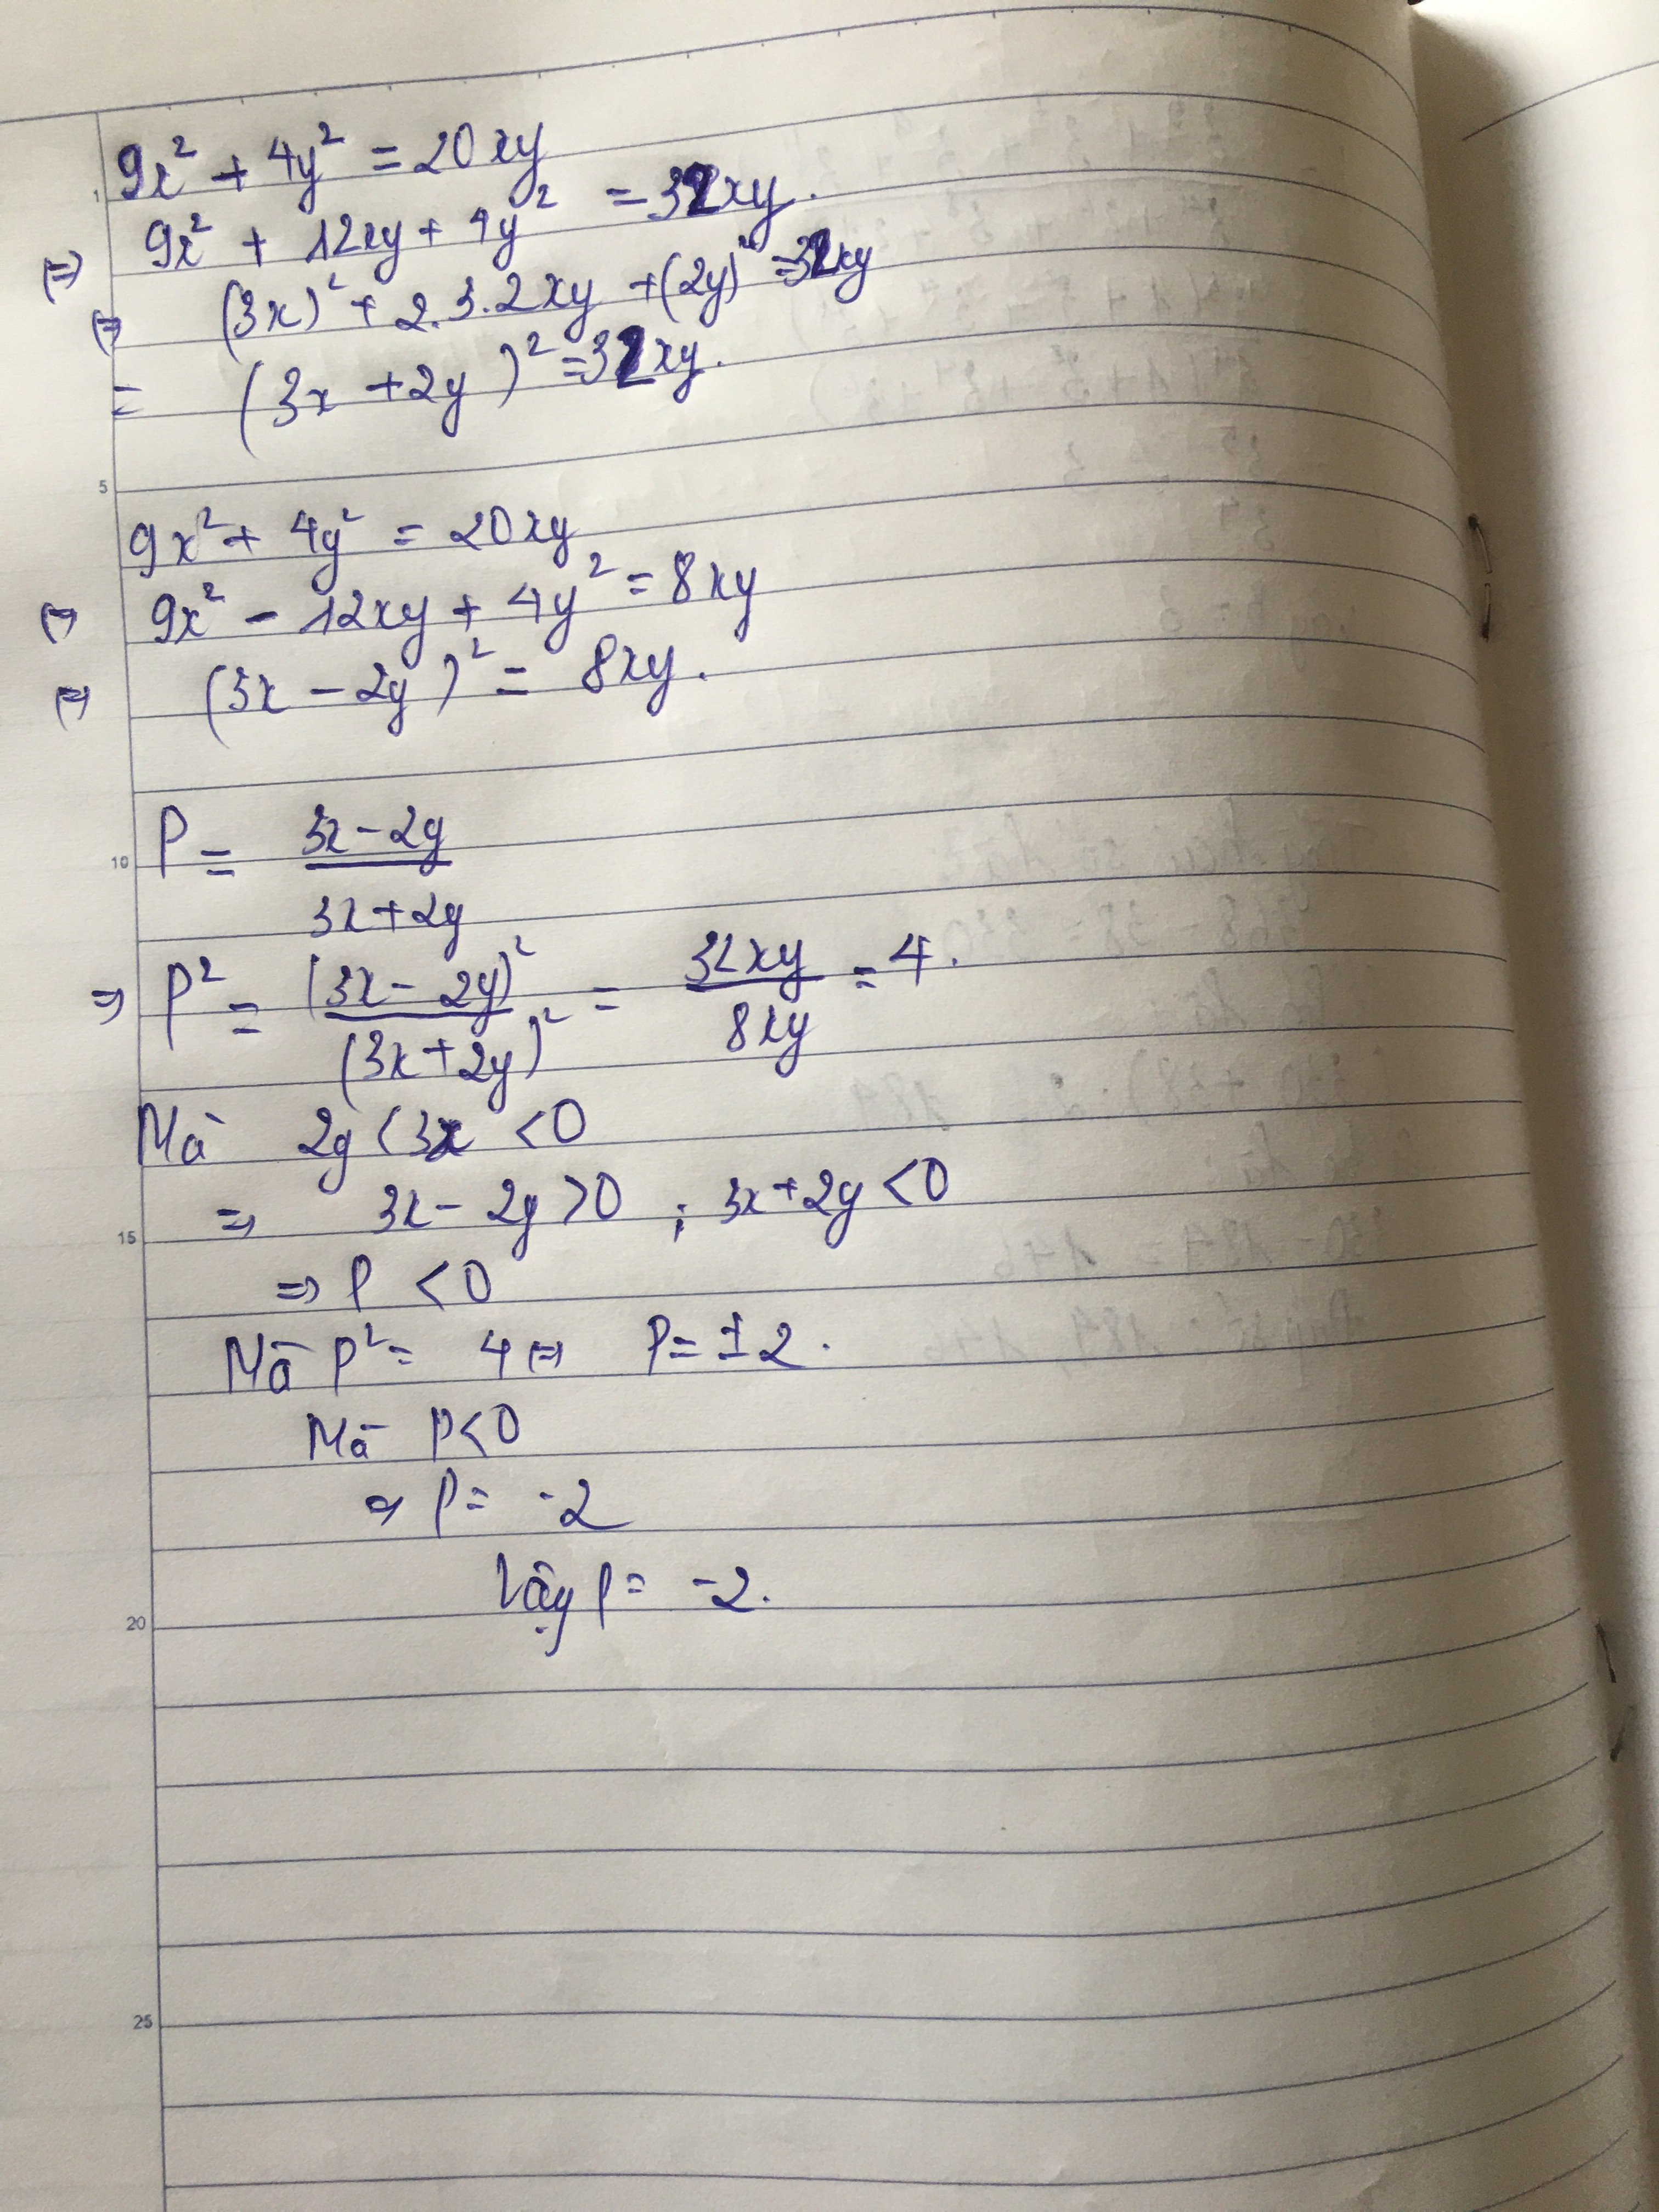 9x² + 4y² = 20xy
(=) 9x² + 12xy + 4y² = 32xy.
(=) (3x)² + 2.3.2xy + (2y)² = 32xy
= (3x + 2y)² = 32xy.
9x² + 4y² = 20xy
(=) 9x² - 12xy + 4y² = 8xy
(=) (3x - 2y)² = 8xy.
P = (3x - 2y)/(3x + 2y)
=> P² = (3x - 2y)²/(3x + 2y)² = 32xy/8xy = 4.
Mà 2y < 3x < 0
=> 3x - 2y > 0 ; 3x + 2y < 0
=> P < 0
Mà P² = 4 (=) P = ±2.
Mà P < 0
=> P = -2
Vậy P = -2.